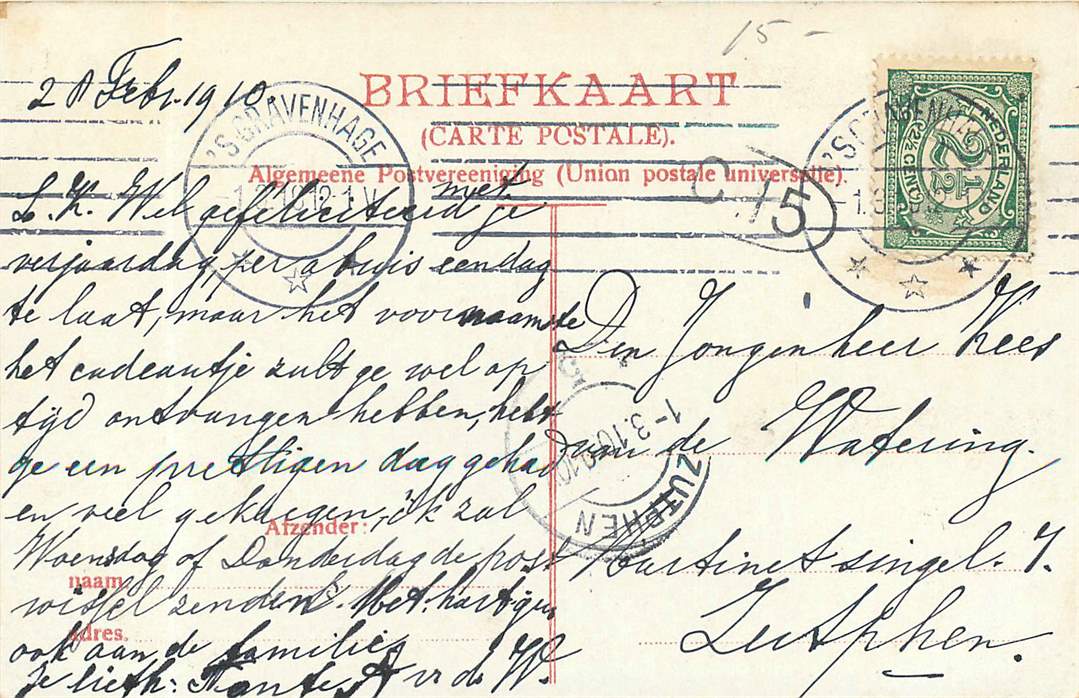 15-
28 Febr. 1910
BRIEFKAART
(CARTE POSTALE).
Algemeene Postvereeniging (Union postale universelle).
'S GRAVENHAGE
'S GRAVENHAGE
NEDERLAND
2½
2½ CENT
15
met
L. K. Wel gefeliciteerd je
verjaardag per abuis een dag
te laat, maar het voornaamste
het cadeautje zult ge wel op
tijd ontvangen hebben, hebt
ge een prettigen dag gehad
en veel gekregen, ik zal
Woensdag of Donderdag de post
wissel zenden. Met hart. gr.
ook aan de familie
Je liefh: Tante A v d W.
Afzender:
naam
adres.
Den Jongenheer Kees
van de Watering.
Martinetsingel. 7.
Zutphen.
ZUTPHEN
1-3.10